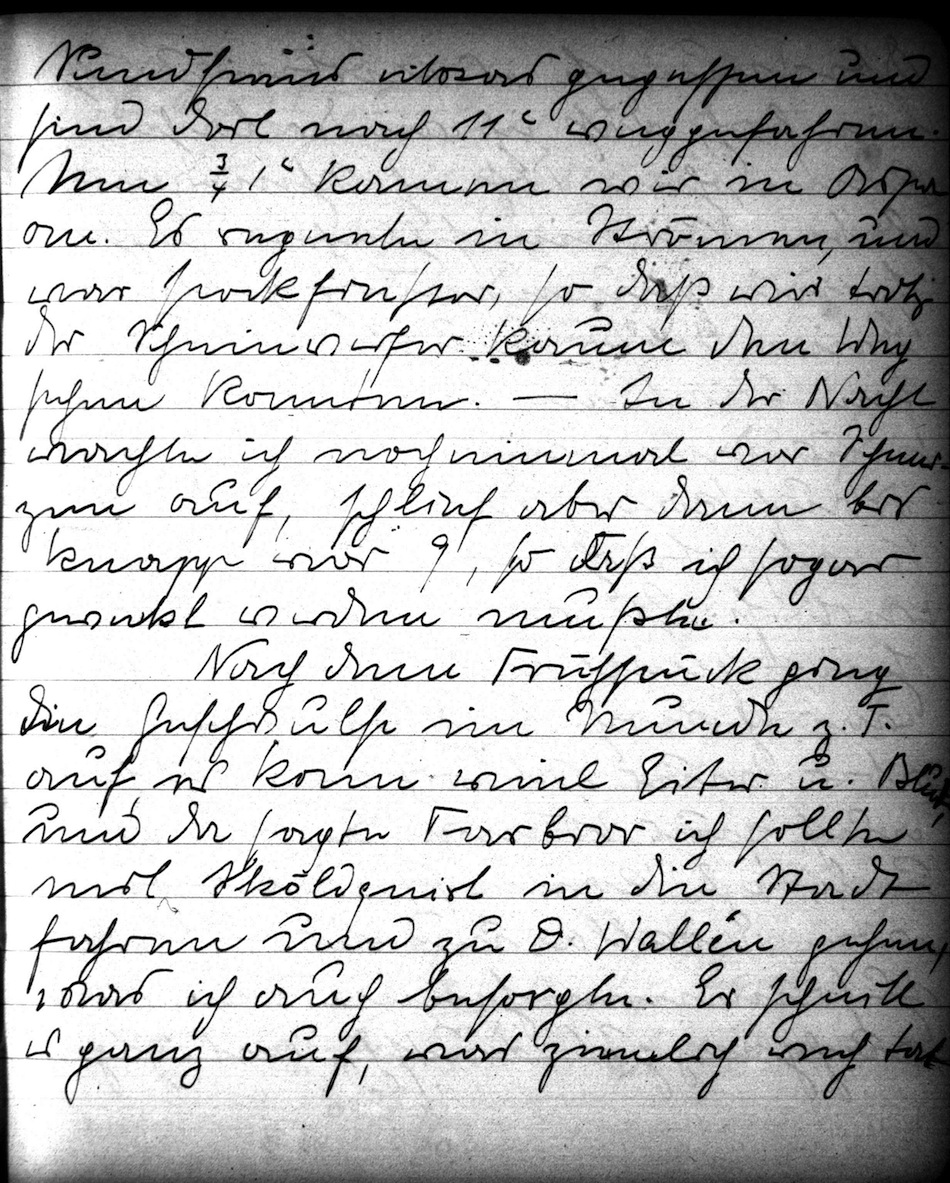 etwas gegessen und
sind dort nach 11ᶜ weggefahren.
Um ¾1ᶜ kamen wir in Aspa
an. Es regnete in Strömen, und
war stockfinster, so daß wir trotz
der Scheinwerfer kaum den Weg
sehen konnten. — In der Nacht
wachte ich nocheinmal vor Schmer-
zen auf, schlief aber dann bis
knapp vor 9, so daß ich sogar
geweckt werden mußte.
Nach dem Frühstück ging
die Geschwulst im Munde z. T.
auf, es kam viel Eiter u. Blut,
und da sagte Farbror ich sollte
mit Sköldquist in die Stadt
fahren und zu D. Wallén gehen,
was ich auch besorgte. Er schnitt
es ganz auf, was ziemlich weh tat